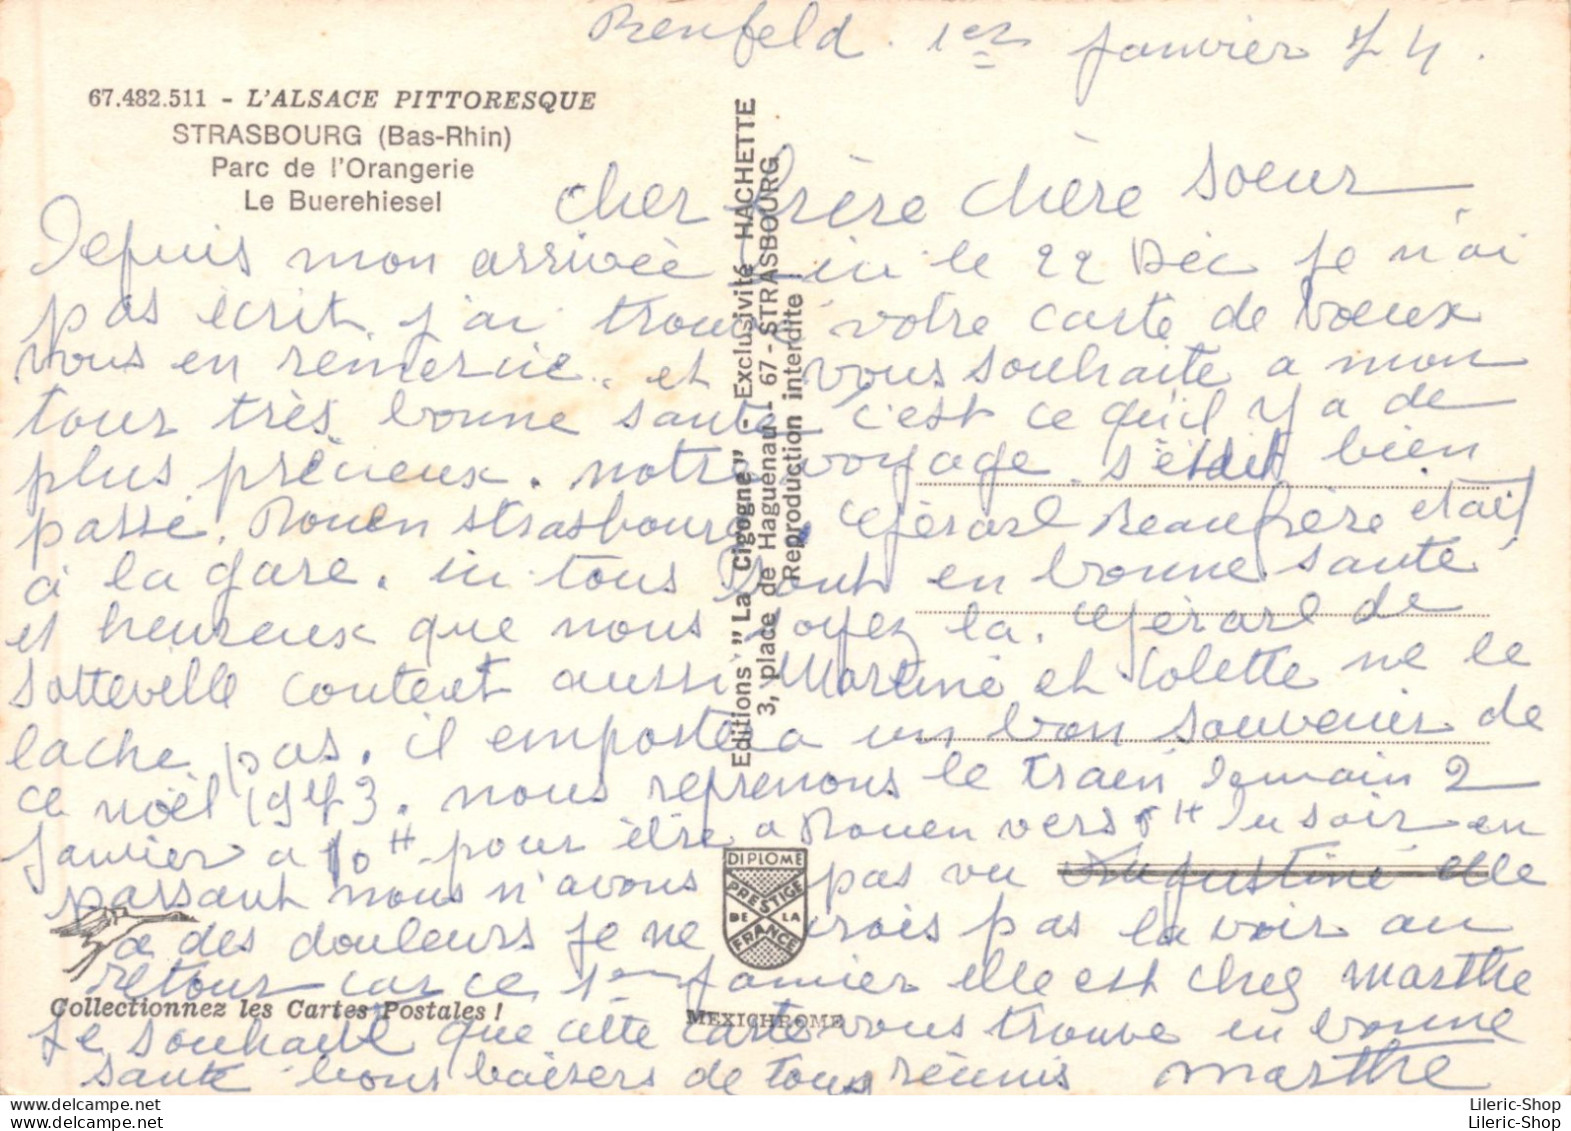 Benfeld. 1er Janvier 74.
67.482.511 - L'ALSACE PITTORESQUE
STRASBOURG (Bas-Rhin)
Parc de l'Orangerie
Le Buerehiesel
Cher frère chère Soeur
Depuis mon arrivée ici le 22 Déc je n'ai
pas écrit. j'ai trouvé votre carte de voeux
vous en remercie. et vous souhaite a mon
tour très bonne santé c'est ce qu'il y a de
plus précieux. notre voyage s'était bien
passé. Rouen Strasbourg. Gérard beaufrère était
à la gare. ici tous sont en bonne santé
et heureux que nous soyez la. Gérard de
Sotteville content aussi Martine et Colette ne le
lache pas. il emportera un bon souvenir de
ce noël 1973. nous reprenons le train demain 2
Janvier a 10H pour être a Rouen vers H du soir en
passant nous n'avons pas vu Augustine elle
a des douleurs je ne crois pas la voir au
retour car ce 1er Janvier elle est chez Marthe
Je souhaite que cette carte vous trouve en bonne
santé bons baisers de tous réunis Marthe
Editions "La Cigogne" - Exclusivité HACHETTE
3, place de Haguenau - 67 - STRASBOURG
Reproduction interdite
DIPLOME
PRESTIGE
DE LA
FRANCE
Collectionnez les Cartes Postales !
MEXICHROME
Lileric-Shop
Lileric-Shop
Lileric-Shop
Lileric-Shop